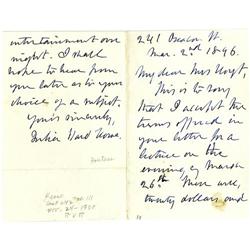 241 Beacon St.
Mar. 2nd 1896.
My dear Mrs Hoyt,
This is to say
that I accept the
terms offered in
your letter for a
lecture on the
evening of March
26th. These will,
twenty dollars and
entertainment one
night. I shall
hope to hear from you
later as to your
choice of a subject.
Yours sincerely,
Julia Ward Howe.